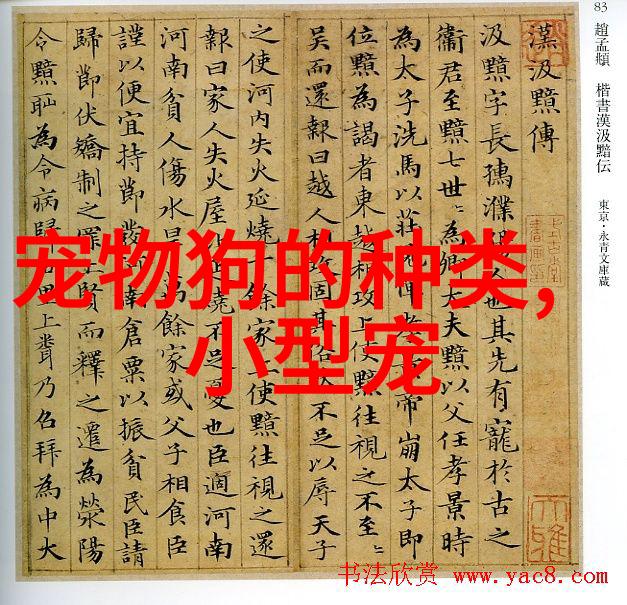 83 趙孟頫 楷書漢汲黯伝 東京・永青文庫蔵
漢汲黯傳
汲黯字長孺濮人也其先有寵於古之
衞君至黯七世〻為卿太夫黯以父任孝景時
為太子洗馬以莊見帝崩太子即
位黯為謁者東越相攻上使黯往視之不至〻
吳而還報曰越人相攻固其俗不足以辱天子
之使河内失火延燒餘家上使黯往視之還
報曰家人失火屋燒不足憂也臣適河南
河南貧人傷水旱萬餘家或父子相食臣
謹以便宜持節發河南倉粟以振貧民臣請
歸節伏矯制之罪上賢而釋之遷為滎陽
令黯恥為令病歸田里上乃召拜為中大
宠物狗的种类,
小型宠
书法欣赏 www.yac8.com